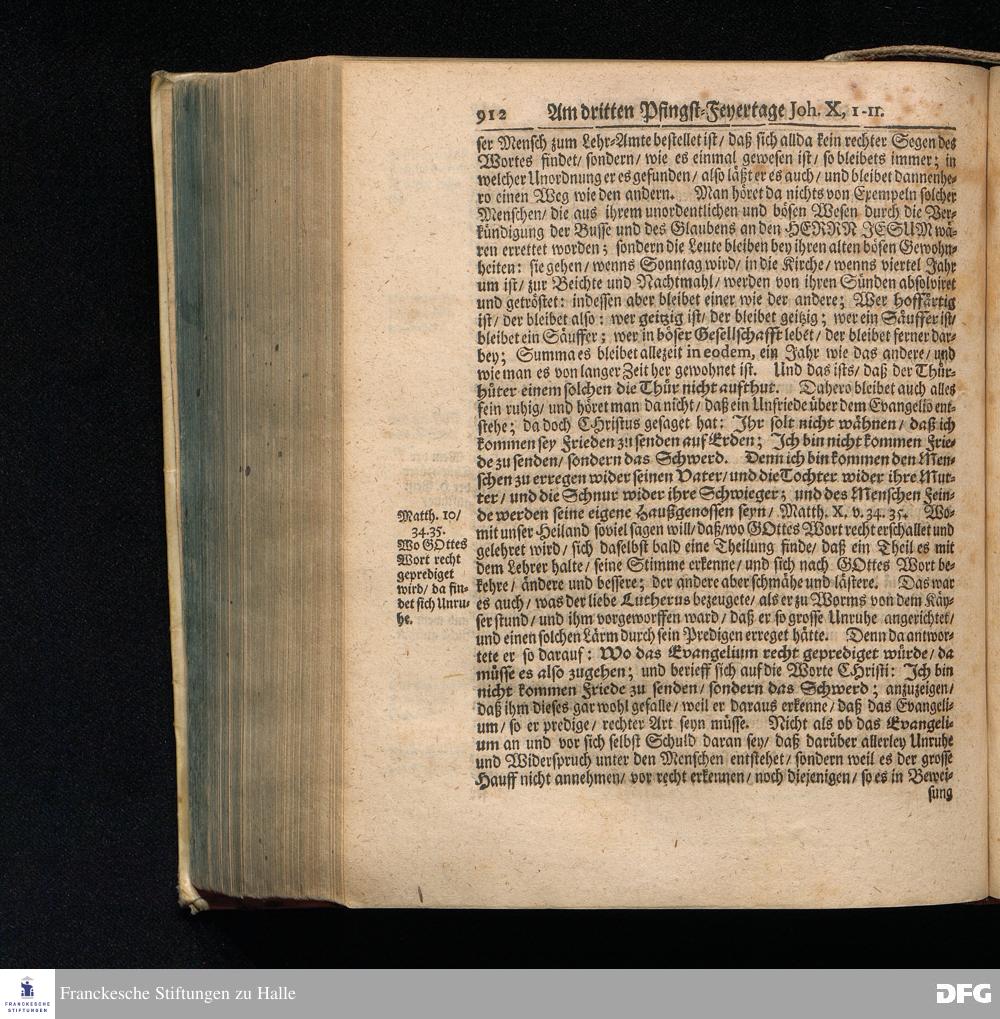 912 Am dritten Pfingst-Feyertage Joh. X, 1-11.
ser Mensch zum Lehr-Amte bestellet ist/ daß sich allda kein rechter Segen des
Wortes findet/ sondern/ wie es einmal gewesen ist/ so bleibets immer; in
welcher Unordnung er es gefunden/ also läßt er es auch/ und bleibet dannenhe-
ro einen Weg wie den andern. Man höret da nichts von Exempeln solcher
Menschen/ die aus ihrem unordentlichen und bösen Wesen durch die Ver-
kündigung der Busse und des Glaubens an den HERRN JESUM wä-
ren errettet worden; sondern die Leute bleiben bey ihren alten bösen Gewohn-
heiten: sie gehen/ wenns Sonntag wird/ in die Kirche/ wenns viertel Jahr
um ist/ zur Beichte und Nachtmahl/ werden von ihren Sünden absolviret
und getröstet: indessen aber bleibet einer wie der andere; Wer hoffärtig
ist/ der bleibet also: wer geitzig ist/ der bleibet geitzig; wer ein Säuffer ist/
bleibet ein Säuffer; wer in böser Gesellschafft lebet/ der bleibet ferner dar-
bey; Summa es bleibet allezeit in eodem, ein Jahr wie das andere/ und
wie man es von langer Zeit her gewohnet ist. Und das ists/ daß der Thür-
hüter einem solchen die Thür nicht aufthut. Dahero bleibet auch alles
fein ruhig/ und höret man da nicht/ daß ein Unfriede über dem Evangelio ent-
stehe; da doch CHristus gesaget hat: Ihr solt nicht wähnen/ daß ich
kommen sey Frieden zu senden auf Erden; Ich bin nicht kommen Frie-
de zu senden/ sondern das Schwerd. Denn ich bin kommen den Men-
schen zu erregen wider seinen Vater/ und die Tochter wider ihre Mut-
ter/ und die Schnur wider ihre Schwieger; und des Menschen Fein-
de werden seine eigene Haußgenossen seyn/ Matth. X. v. 34. 35. Wo-
mit unser Heiland soviel sagen will/ daß/ wo GOttes Wort recht erschallet und
gelehret wird/ sich daselbst bald eine Theilung finde/ daß ein Theil es mit
dem Lehrer halte/ seine Stimme erkenne/ und sich nach GOttes Wort be-
kehre/ ändere und bessere; der andere aber schmähe und lästere. Das war
es auch/ was der liebe Lutherus bezeugete/ als er zu Worms von dem Käy-
ser stund/ und ihm vorgeworffen ward/ daß er so grosse Unruhe angerichtet/
und einen solchen Lärm durch sein Predigen erreget hätte. Denn da antwor-
tete er so darauf: Wo das Evangelium recht geprediget würde/ da
müsse es also zugehen; und berieff sich auf die Worte CHristi: Ich bin
nicht kommen Friede zu senden/ sondern das Schwerd; anzuzeigen/
daß ihm dieses gar wohl gefalle/ weil er daraus erkenne/ daß das Evangeli-
um/ so er predige/ rechter Art seyn müsse. Nicht als ob das Evangeli-
um an und vor sich selbst Schuld daran sey/ daß darüber allerley Unruhe
und Widerspruch unter den Menschen entstehet/ sondern weil es der grosse
Hauff nicht annehmen/ vor recht erkennen/ noch diejenigen/ so es in Bewei-
sung
Matth. 10/
34.35.
Wo GOttes
Wort recht
geprediget
wird/ da fin-
det sich Unru-
he.
FRANCKESCHE
STIFTUNGEN
Franckesche Stiftungen zu Halle
DFG